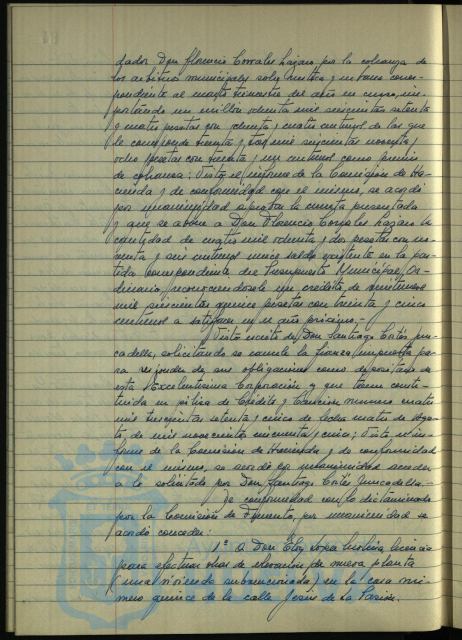 dador Don Florencio Corrales Lázaro por la cobranza de
los arbitrios municipales sobre rústica y urbana corres-
pondiente al cuarto trimestre del año en curso, im-
portando un millón ochenta mil seiscientas setenta
y cuatro pesetas con ochenta y cuatro centimos de las que
le corresponde treinta y mil seiscientas noventa y
ocho pesetas con y un centimos como premio
de cobranza; Visto el informe de la Comisión de Ha-
cienda y de conformidad con el mismo, se acordó
por unanimidad aprobar la cuenta presentada
y que se abone a Don Florencio Corrales Lázaro la
cantidad de cuatro mil ochenta y dos pesetas con no-
venta y seis centimos unico saldo existente en la par-
tida correspondiente del Presupuesto Municipal Or-
dinario, reconociendosele un credito de
mil seiscientas quince pesetas con treinta y cinco
centimos a satisfacer en el año próximo.-
Visto escrito de Don Santiago Cortés Jun-
cadella, solicitando se cancele la fianza impuesta pa-
ra responder de sus obligaciones como depositario de
esta Excelentísima Corporación y que tiene consti-
tuida en póliza de Crédito y Caución número cuatro
mil trescientas setenta y cinco de fecha cuatro de Agos-
to de mil novecientos cincuenta y cinco; Visto el in-
forme de la Comisión de Hacienda y de conformidad
con el mismo, se acordó por unanimidad acceder
a lo solicitado por Don Santiago Cortés Juncadella.-
De conformidad con lo dictaminado
por la Comisión de Fomento, por unanimidad se
acordó conceder:
1º a Don Eloy licencia
para efectuar obras de elevación de nueva planta
(una vivienda subvencionada) en la casa nú-
mero quince de la calle Jesús de la Pasión.